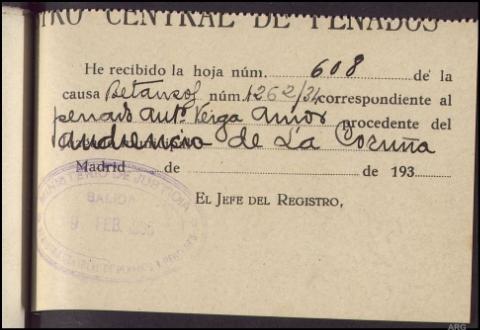 TRO CENTRAL DE PENADOS
He recibido la hoja núm. 608 de la
causa Betanzos núm. 1262/34 correspondiente al
penado Antº Veiga Amor procedente del
Audiencia de La Coruña
Madrid de de 193
EL JEFE DEL REGISTRO,
MINISTERIO DE JUSTICIA
SALIDA
9 FEB.
ARG